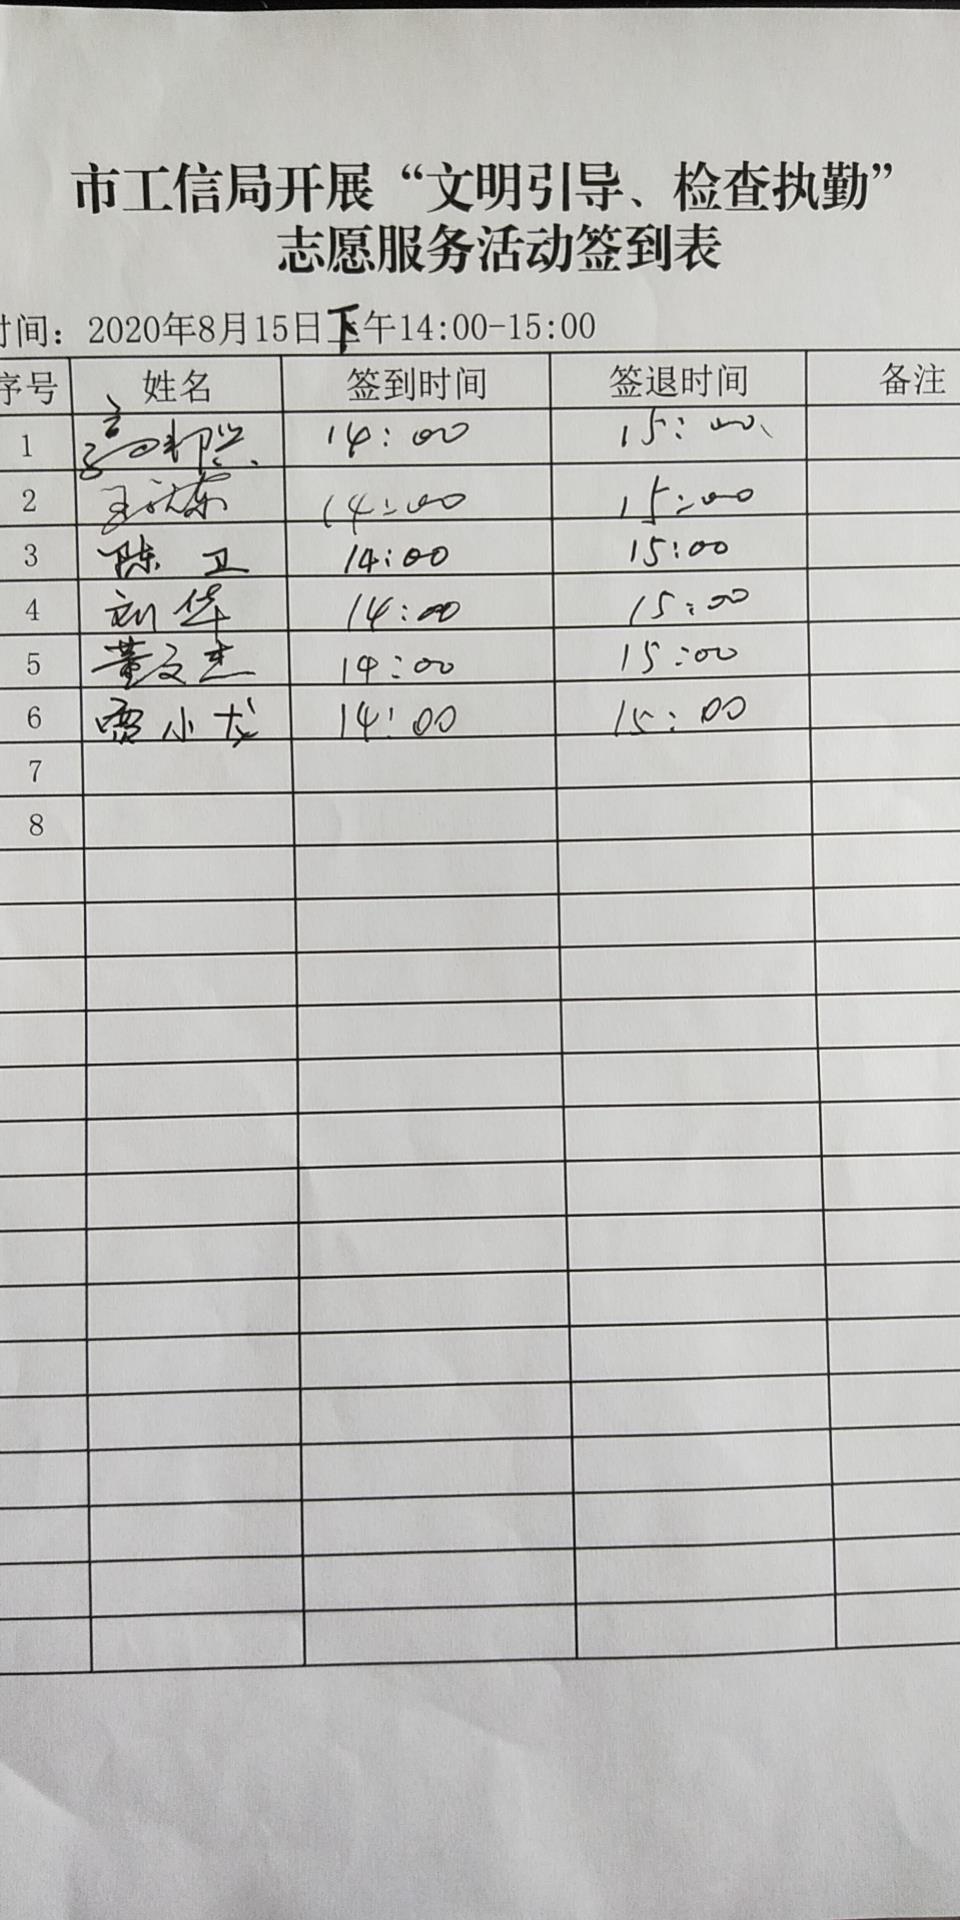 市工信局开展“文明引导、检查执勤”
志愿服务活动签到表
时间：2020年8月15日下午14:00-15:00
序号 姓名 签到时间 签退时间 备注
1 14:00 15:00
2 王 东 14:00 15:00
3 陈卫 14:00 15:00
4 刘华 14:00 15:00
5 董文杰 14:00 15:00
6 贾小龙 14:00 15:00
7
8